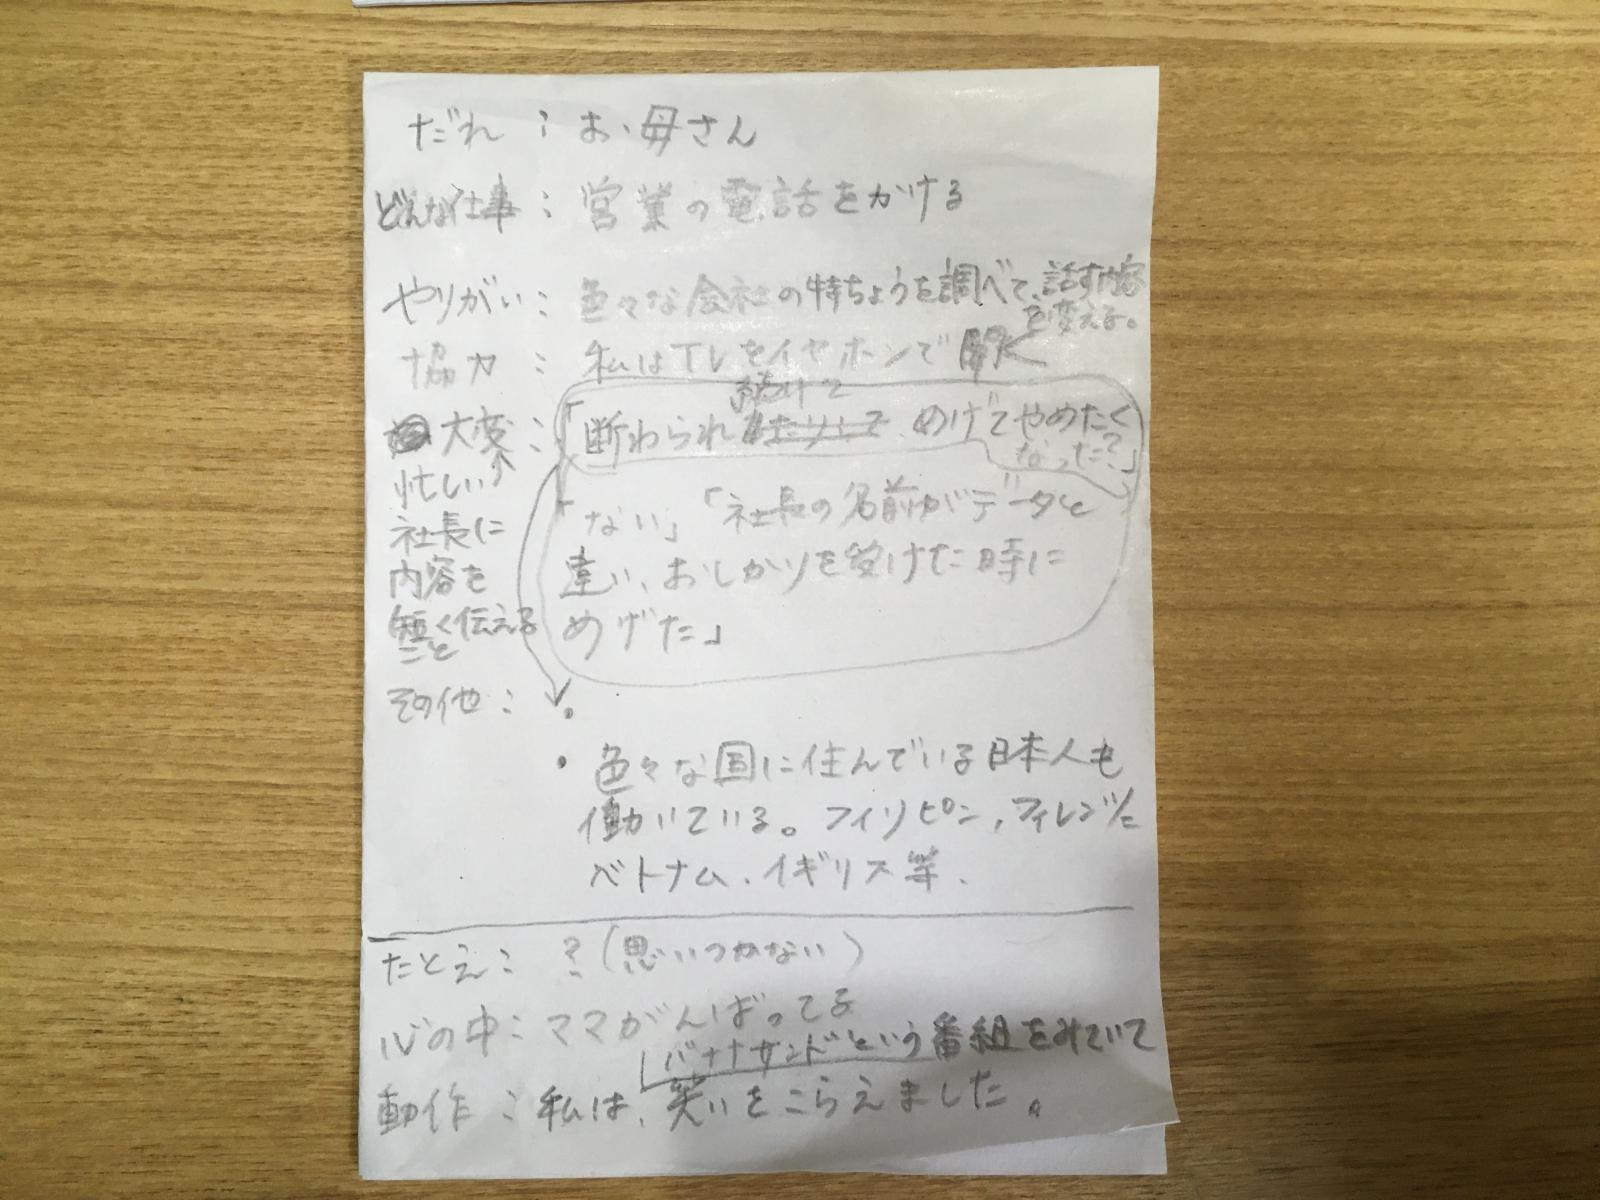 だれ：お母さん
どんな仕事：営業の電話をかける
やりがい：色々な会社の特ちょうを調べて、話す内容
を変える。
協力：私はTVをイヤホンで聞く
続けて
大変：「断わられたりして、めげてやめたく
なった？」
忙しい
社長に
内容を
短く伝える
こと
「ない」「社長の名前がデータと
違い、おしかりを受けた時に
めげた」
その他：・
・色々な国に住んでいる日本人も
働いている。フィリピン、フィレンツェ
ベトナム、イギリス等、
たとえ：？（思いつかない）
心の中：ママがんばってる
バナナサンドという番組をみていて
動作：私は、笑いをこらえました。